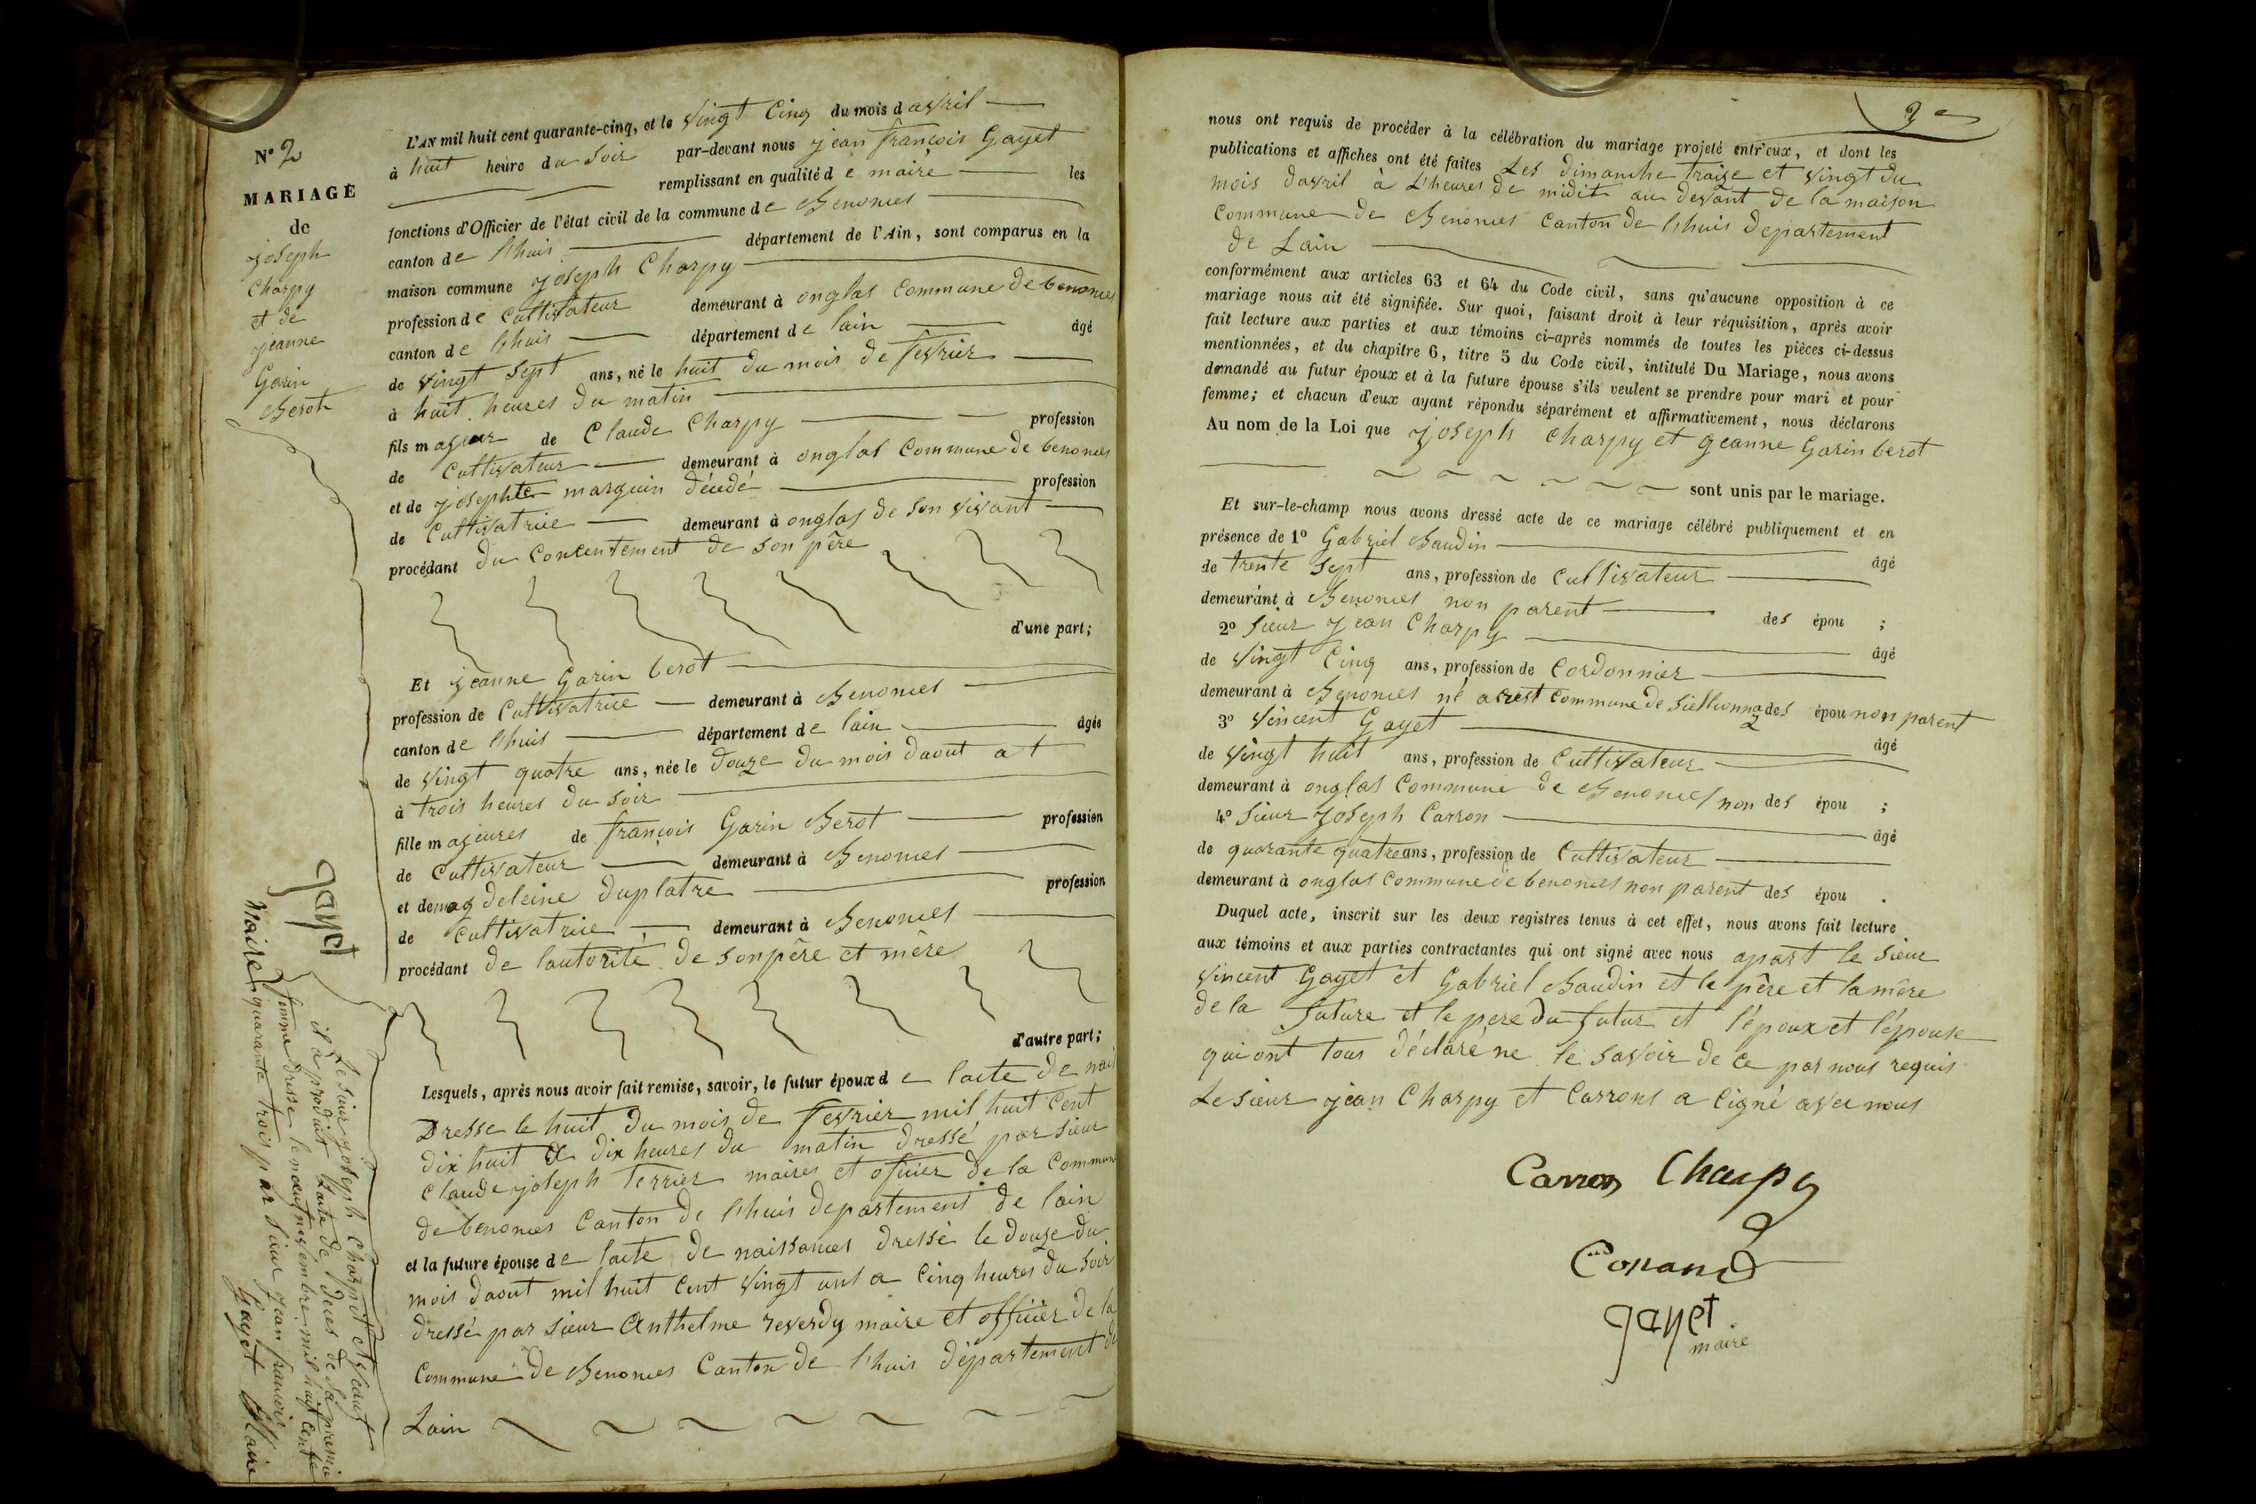 N° 2
MARIAGE
de
joseph
Charpy
et de
jeanne
Garin
Berot
L'AN mil huit cent quarante-cinq, et le vingt Cinq du mois d avril
à huit heure du soir par-devant nous jean françois Gayet
remplissant en qualité d e maire les
fonctions d'Officier de l'état civil de la commune de Benonces
canton de lhuis département de l'Ain, sont comparus en la
maison commune joseph Charpy
profession de Cultivateur demeurant à onglas Commune de benonces
canton de lhuis département de lain âgé
de vingt sept ans, né le huit du mois de fevrier
à huit heures du matin
fils majeur de Claude Charpy profession
de Cultivateur demeurant à onglas Commune de benonces
et de josephte marguin décédé profession
de Cultivatrice demeurant à onglas de son vivant
procédant du Concentement de son père
d'une part;
Et jeanne Garin berot
profession de Cultivatrice demeurant à Benonces
canton de lhuis département de lain âgée
de vingt quatre ans, née le douze du mois daout a t
à trois heures du soir
fille majeures de françois Garin Berot profession
de Cultivateur demeurant à Benonces
et de magdeleine duplatre profession
de Cultivatrice demeurant à Benonces
procédant de lautorité de son père et mère
d'autre part;
Lesquels, après nous avoir fait remise, savoir, le futur époux d e lacte de nais
Dresse le huit du mois de fevrier mil huit Cent
dix huit a dix heures du matin dressé par sieur
Claude joseph terrier maires et oficier de la Commune
de benonces Canton de lhuis departement de lain
et la future épouse de lacte de naissances dressé le douze du
mois daout mil huit Cent vingt uns a Cinq heures du soir
dressé par sieur Anthelme reverdy maire et officier de la
Commune de Benonces Canton de lhuis département de
Lain
Gayet
Maire
Le sieur joseph Charpy
il a produit lacte de deces de sa premie
femme dresse le neuf novembre mil huit Cent
quarante trois par sieur jean francois
Gayet Maire
2
nous ont requis de procéder à la célébration du mariage projeté entr'eux, et dont les
publications et affiches ont été faites Les dimanche traize et vingt du
mois davril à L'heures de midit au devant de la maison
Commune de Benonces Canton de lhuis departement
de Lain
conformément aux articles 63 et 64 du Code civil, sans qu'aucune opposition à ce
mariage nous ait été signifiée. Sur quoi, faisant droit à leur réquisition, après avoir
fait lecture aux parties et aux témoins ci-après nommés de toutes les pièces ci-dessus
mentionnées, et du chapitre 6, titre 5 du Code civil, intitulé Du Mariage, nous avons
demandé au futur époux et à la future épouse s'ils veulent se prendre pour mari et pour
femme; et chacun d'eux ayant répondu séparément et affirmativement, nous déclarons
Au nom de la Loi que joseph Charpy et jeanne Garin berot
sont unis par le mariage.
Et sur-le-champ nous avons dressé acte de ce mariage célébré publiquement et en
présence de 1° Gabriel Baudin âgé
de trente sept ans, profession de Cultivateur
demeurant à Benonces non parent des épou ;
2° sieur jean Charpy âgé
de vingt Cinq ans, profession de Cordonnier
demeurant à Benonces né a crest Commune de des épou non parent
3° vincent Gayet âgé
de vingt huit ans, profession de Cultivateur
demeurant à onglas Commune de Benonces non des épou ;
4° sieur joseph Carron âgé
de quarante quatre ans, profession de Cultivateur
demeurant à onglas Commune de benonces non parent des épou .
Duquel acte, inscrit sur les deux registres tenus à cet effet, nous avons fait lecture
aux témoins et aux parties contractantes qui ont signé avec nous apart le sieur
vincent Gayet et Gabriel Baudin et le père et la mère
de la future et le pere du futur et l'époux et l'épouse
qui ont tous déclaré ne le savoir de ce par nous requis
Le sieur jean Charpy et Carrons a Cigné avec nous
Carron Charpy
Gayet
maire